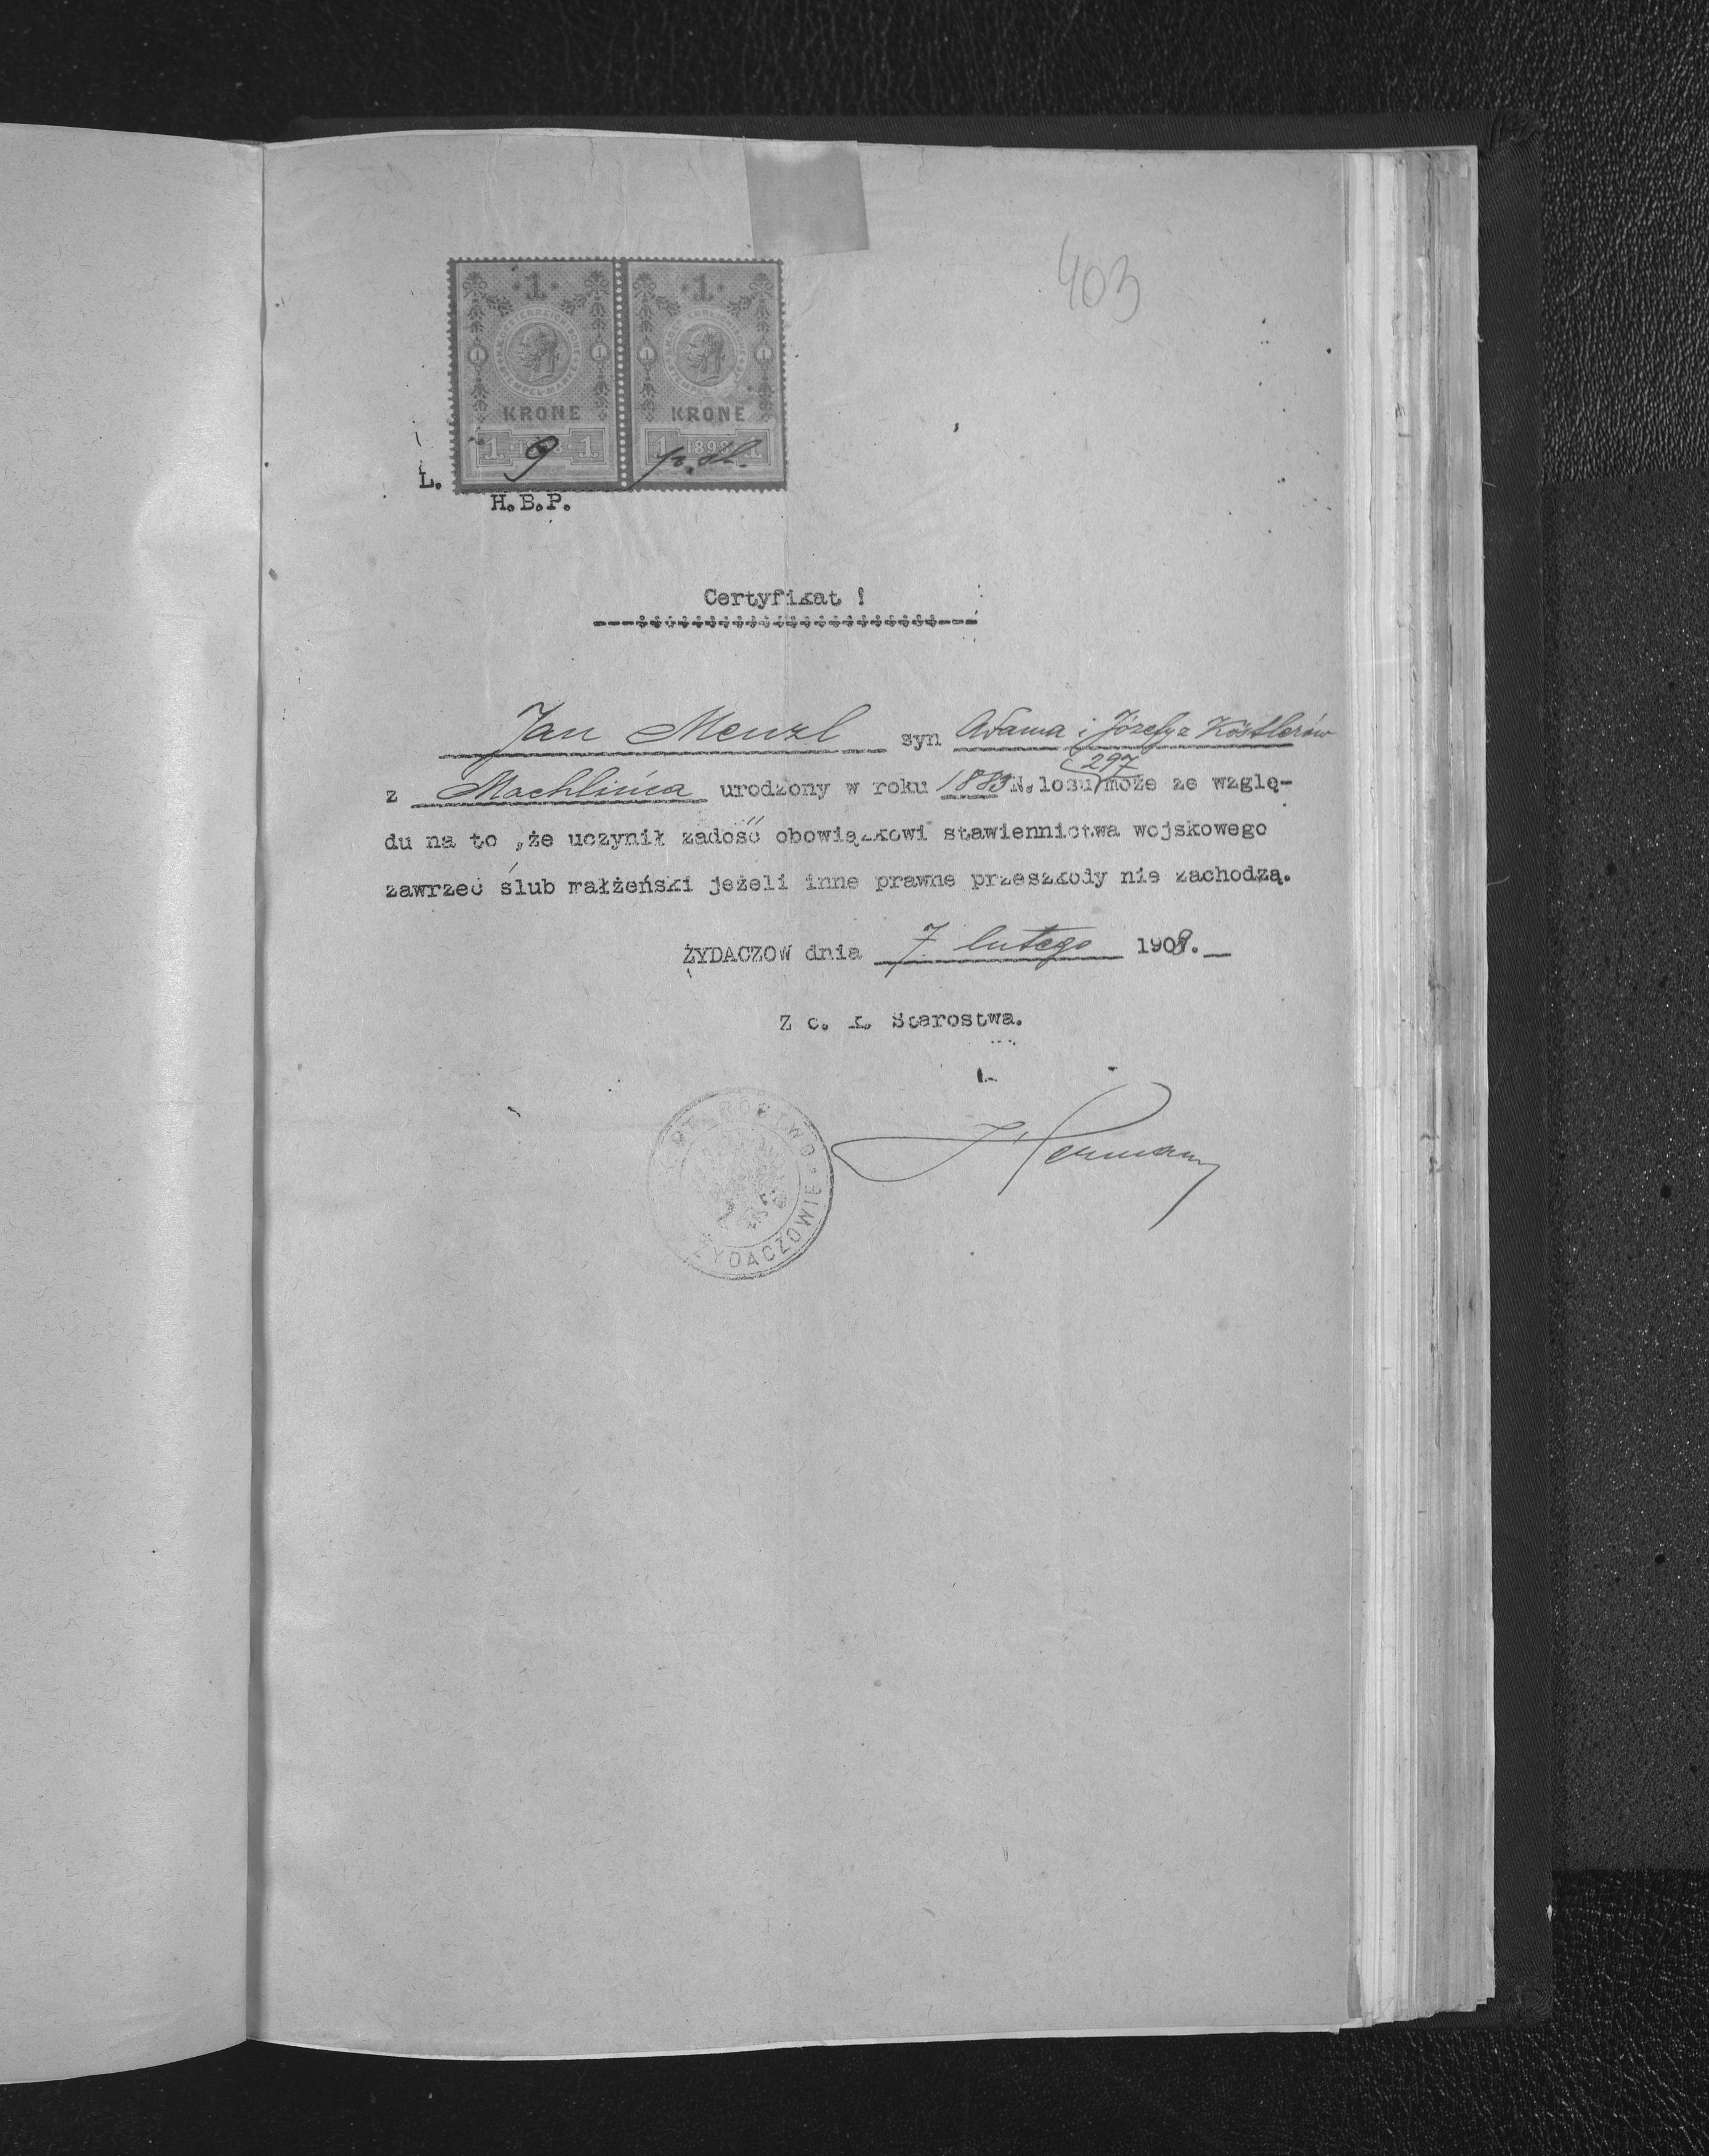 403
1 1
K.K. OESTERREICHISCHE STEMPEL-MARKE
KRONE KRONE
1 1898 1 1 1898 1
L. 9
H.B.P.
Certyfikat !
Jan Menzl syn Adama i Józefy z Köstlerów
297
z Machlińca urodzony w roku 1883 N. losu może ze wzglę-
du na to ,że uczynił zadość obowiązkowi stawiennictwa wojskowego
zawrzeć ślub małżeński jeżeli inne prawne przeszkody nie zachodzą.
ŻYDACZOW dnia 7 lutego 1908.
Z c. k. Starostwa.
STAROSTWO W ŻYDACZOWIE